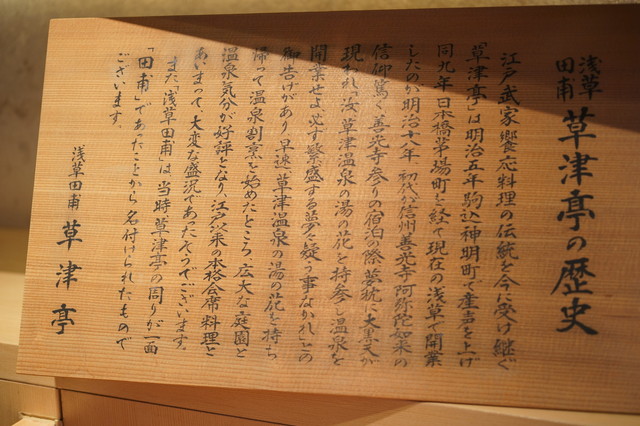 浅草田甫 草津亭の歴史
江戸武家饗応料理の伝統を今に受け継ぐ
「草津亭」は明治五年駒込神明町で産声を上げ
同九年日本橋茅場町を経て現在の浅草で開業
したのが明治十八年 初代が信州善光寺阿弥陀如来の
信仰篤く善光寺参りの宿泊の際、夢枕に大黒天が
現われ「汝、草津温泉の湯の花を持参し温泉を
開業せよ、必ず繁盛する夢々疑う事なかれ」との
御告げがあり 早速、草津温泉の湯の花を持ち
帰って温泉割烹を始めたところ、広大な庭園と
温泉気分が好評となり、江戸以来の本格会席料理と
あいまって、大変な盛況であったそうでございます。
また「浅草田甫」は、当時草津亭の周りが一面
「田甫」であったことから名付けられたもので
ございます。
浅草田甫 草津亭